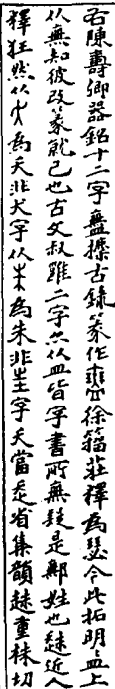 右陳壽卿器銘十二字盤攈古錄篆作𡔷徐籀莊釋爲瑟今此拓明明皿上
从無知彼改篆就己也古文叔雖二字亦从皿皆字書所無疑是鄦姓也趎近人
釋狂然从大爲天非犬字从朱爲朱非㞷字天當走省集韻趎重株切